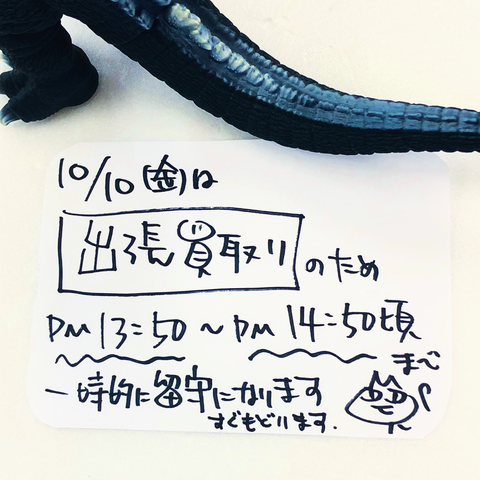 10/10(金)は
出張買取り のため
PM 13:50 ~ PM 14:50頃
まで
一時的に留守になります
すぐもどります.